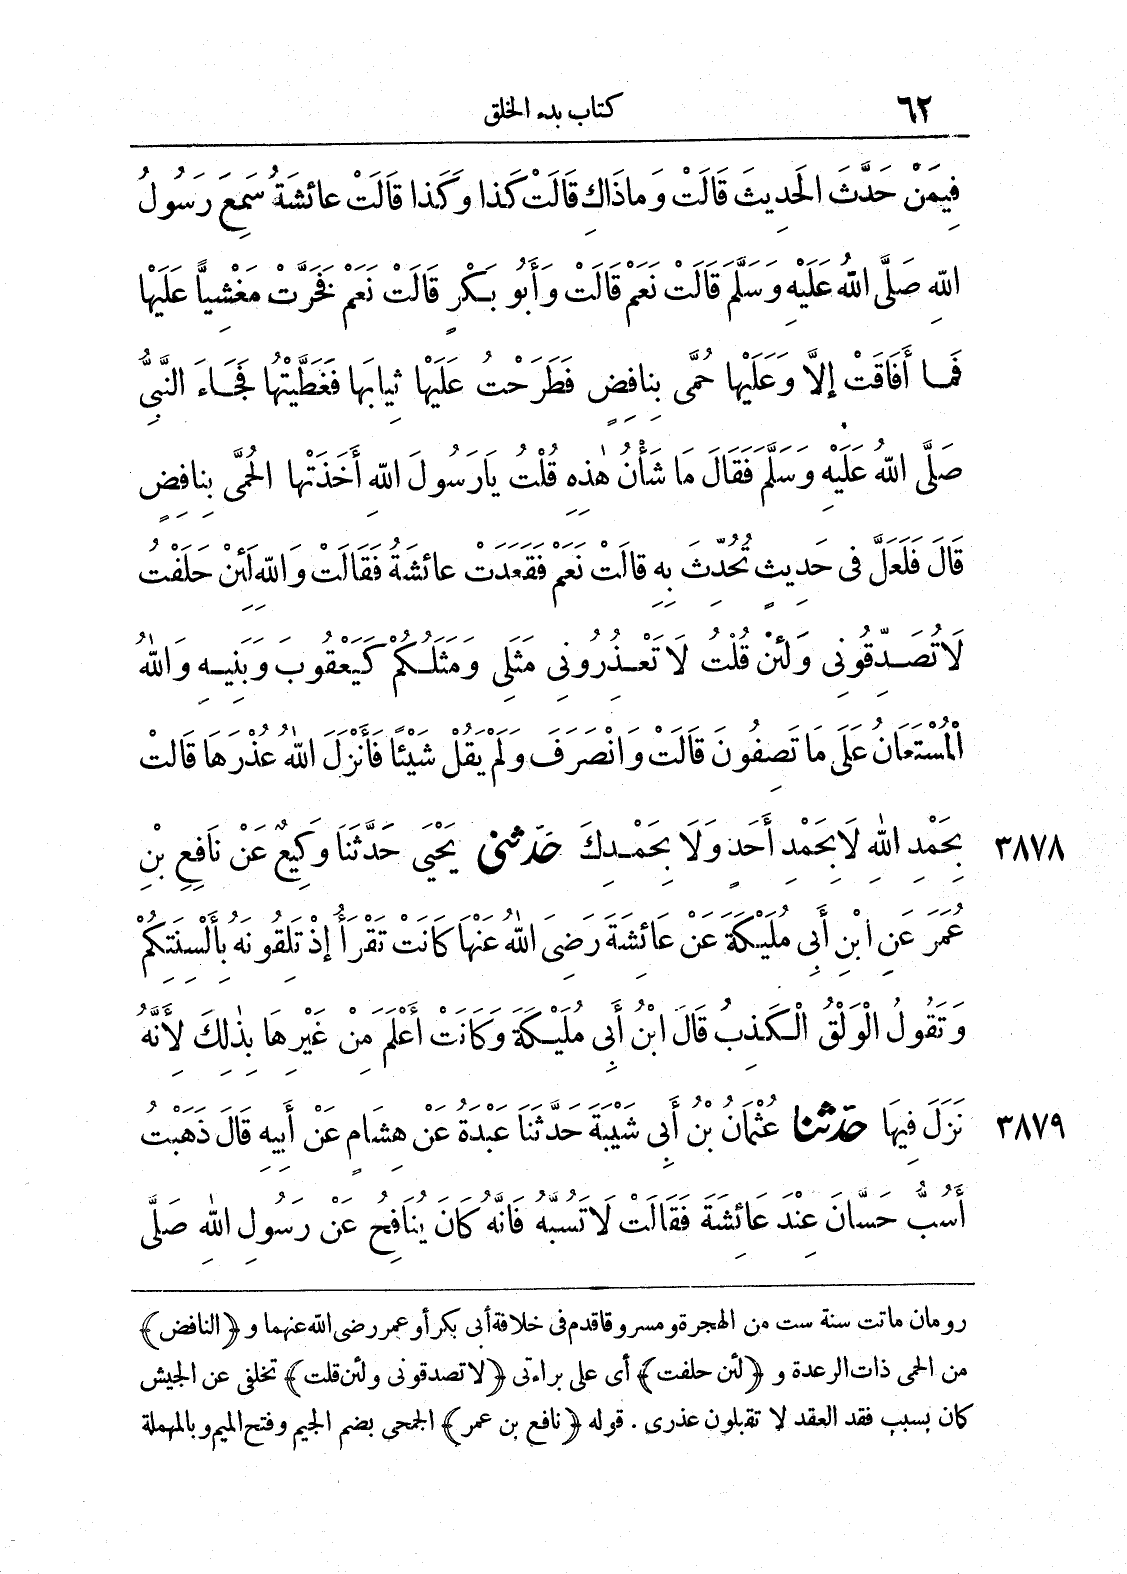 ٦٢ كتاب بدء الخلق
فِيمَنْ حَدَّثَ الحَدِيثَ قَالَتْ وَمَاذَاكِ قَالَتْ كَذا وَكَذا قَالَتْ عَائشَةُ سَمِعَ رَسُولُ
اللهِ صَلَّى اللهُ عَلَيْهِ وَسَلَّمَ قَالَتْ نَعَمْ قَالَتْ وَأَبُو بَكْرٍ قَالَتْ نَعَمْ فَخَرَّتْ مَغْشِيًّا عَلَيْهَا
فَمَا أَفَاقَتْ إِلَّا وَعَلَيْهَا حُمَّى بِنَافِضٍ فَطَرَحْتُ عَلَيْهَا ثِيَابَهَا فَغَطَّيْتُهَا فَجَاءَ النَّبِيُّ
صَلَّى اللهُ عَلَيْهِ وَسَلَّمَ فَقَالَ مَا شَأْنُ هٰذِهِ قُلْتُ يَارَسُولَ اللهِ أَخَذَتْهَا الحُمَّى بِنَافِضٍ
قَالَ فَلَعَلَّ فِي حَدِيثٍ تُحُدِّثَ بِهِ قَالَتْ نَعَمْ فَقَعَدَتْ عَائشَةُ فَقَالَتْ وَاللهِ لَئِنْ حَلَفْتُ
لَا تُصَدِّقُونِي وَلَئِنْ قُلْتُ لَا تَعْذِرُونِي مَثَلِي وَمَثَلُكُمْ كَيَعْقُوبَ وَبَنِيهِ وَاللهُ
الْمُسْتَعَانُ عَلَى مَا تَصِفُونَ قَالَتْ وَانْصَرَفَ وَلَمْ يَقُلْ شَيْئًا فَأَنْزَلَ اللهُ عُذْرَهَا قَالَتْ
٣٨٧٨ بِحَمْدِ اللهِ لَا بِحَمْدِ أَحَدٍ وَلَا بِحَمْدِكَ حَدَّثَنِي يَحْيَى حَدَّثَنَا وَكِيعٌ عَنْ نَافِعِ بْنِ
عُمَرَ عَنِ ابْنِ أَبِي مُلَيْكَةَ عَنْ عَائِشَةَ رَضِيَ اللهُ عَنْهَا كَانَتْ تَقْرَأُ إِذْ تَلِقُونَهُ بِأَلْسِنَتِكُمْ
وَتَقُولُ الْوَلْقُ الْكَذِبُ قَالَ ابْنُ أَبِي مُلَيْكَةَ وَكَانَتْ أَعْلَمَ مِنْ غَيْرِهَا بِذٰلِكَ لِأَنَّهُ
٣٨٧٩ نَزَلَ فِيهَا حَدَّثَنَا عُثْمَانُ بْنُ أَبِي شَيْبَةَ حَدَّثَنَا عَبْدَةُ عَنْ هِشَامٍ عَنْ أَبِيهِ قَالَ ذَهَبْتُ
أَسُبُّ حَسَّانَ عِنْدَ عَائِشَةَ فَقَالَتْ لَا تَسُبَّهُ فَإِنَّهُ كَانَ يُنَافِحُ عَنْ رَسُولِ اللهِ صَلَّى
رومان ماتت سنة ست من الهجرة ومسروقا قدم فى خلافة أبى بكر أو عمر رضى الله عنهما و ﴿النافض﴾
من الحمى ذات الرعدة و ﴿لئن حلفت﴾ أى على براءتى ﴿لا تصدقونى ولئن قلت﴾ تخلفى عن الجيش
كان بسبب فقد العقد لا تقبلون عذرى . قوله ﴿نافع بن عمر﴾ الجمحى بضم الجيم وفتح الميم وبالمهملة